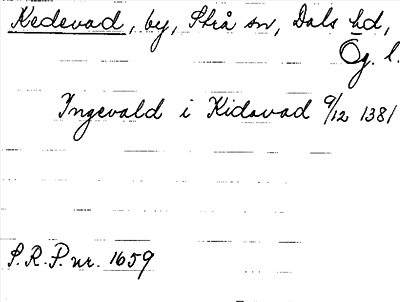 Kedevad, by, Strå sn, Dals hd,
Ög. l.
Ingevald i Kidavad 9/12 1381
S.R.P. nr. 1659